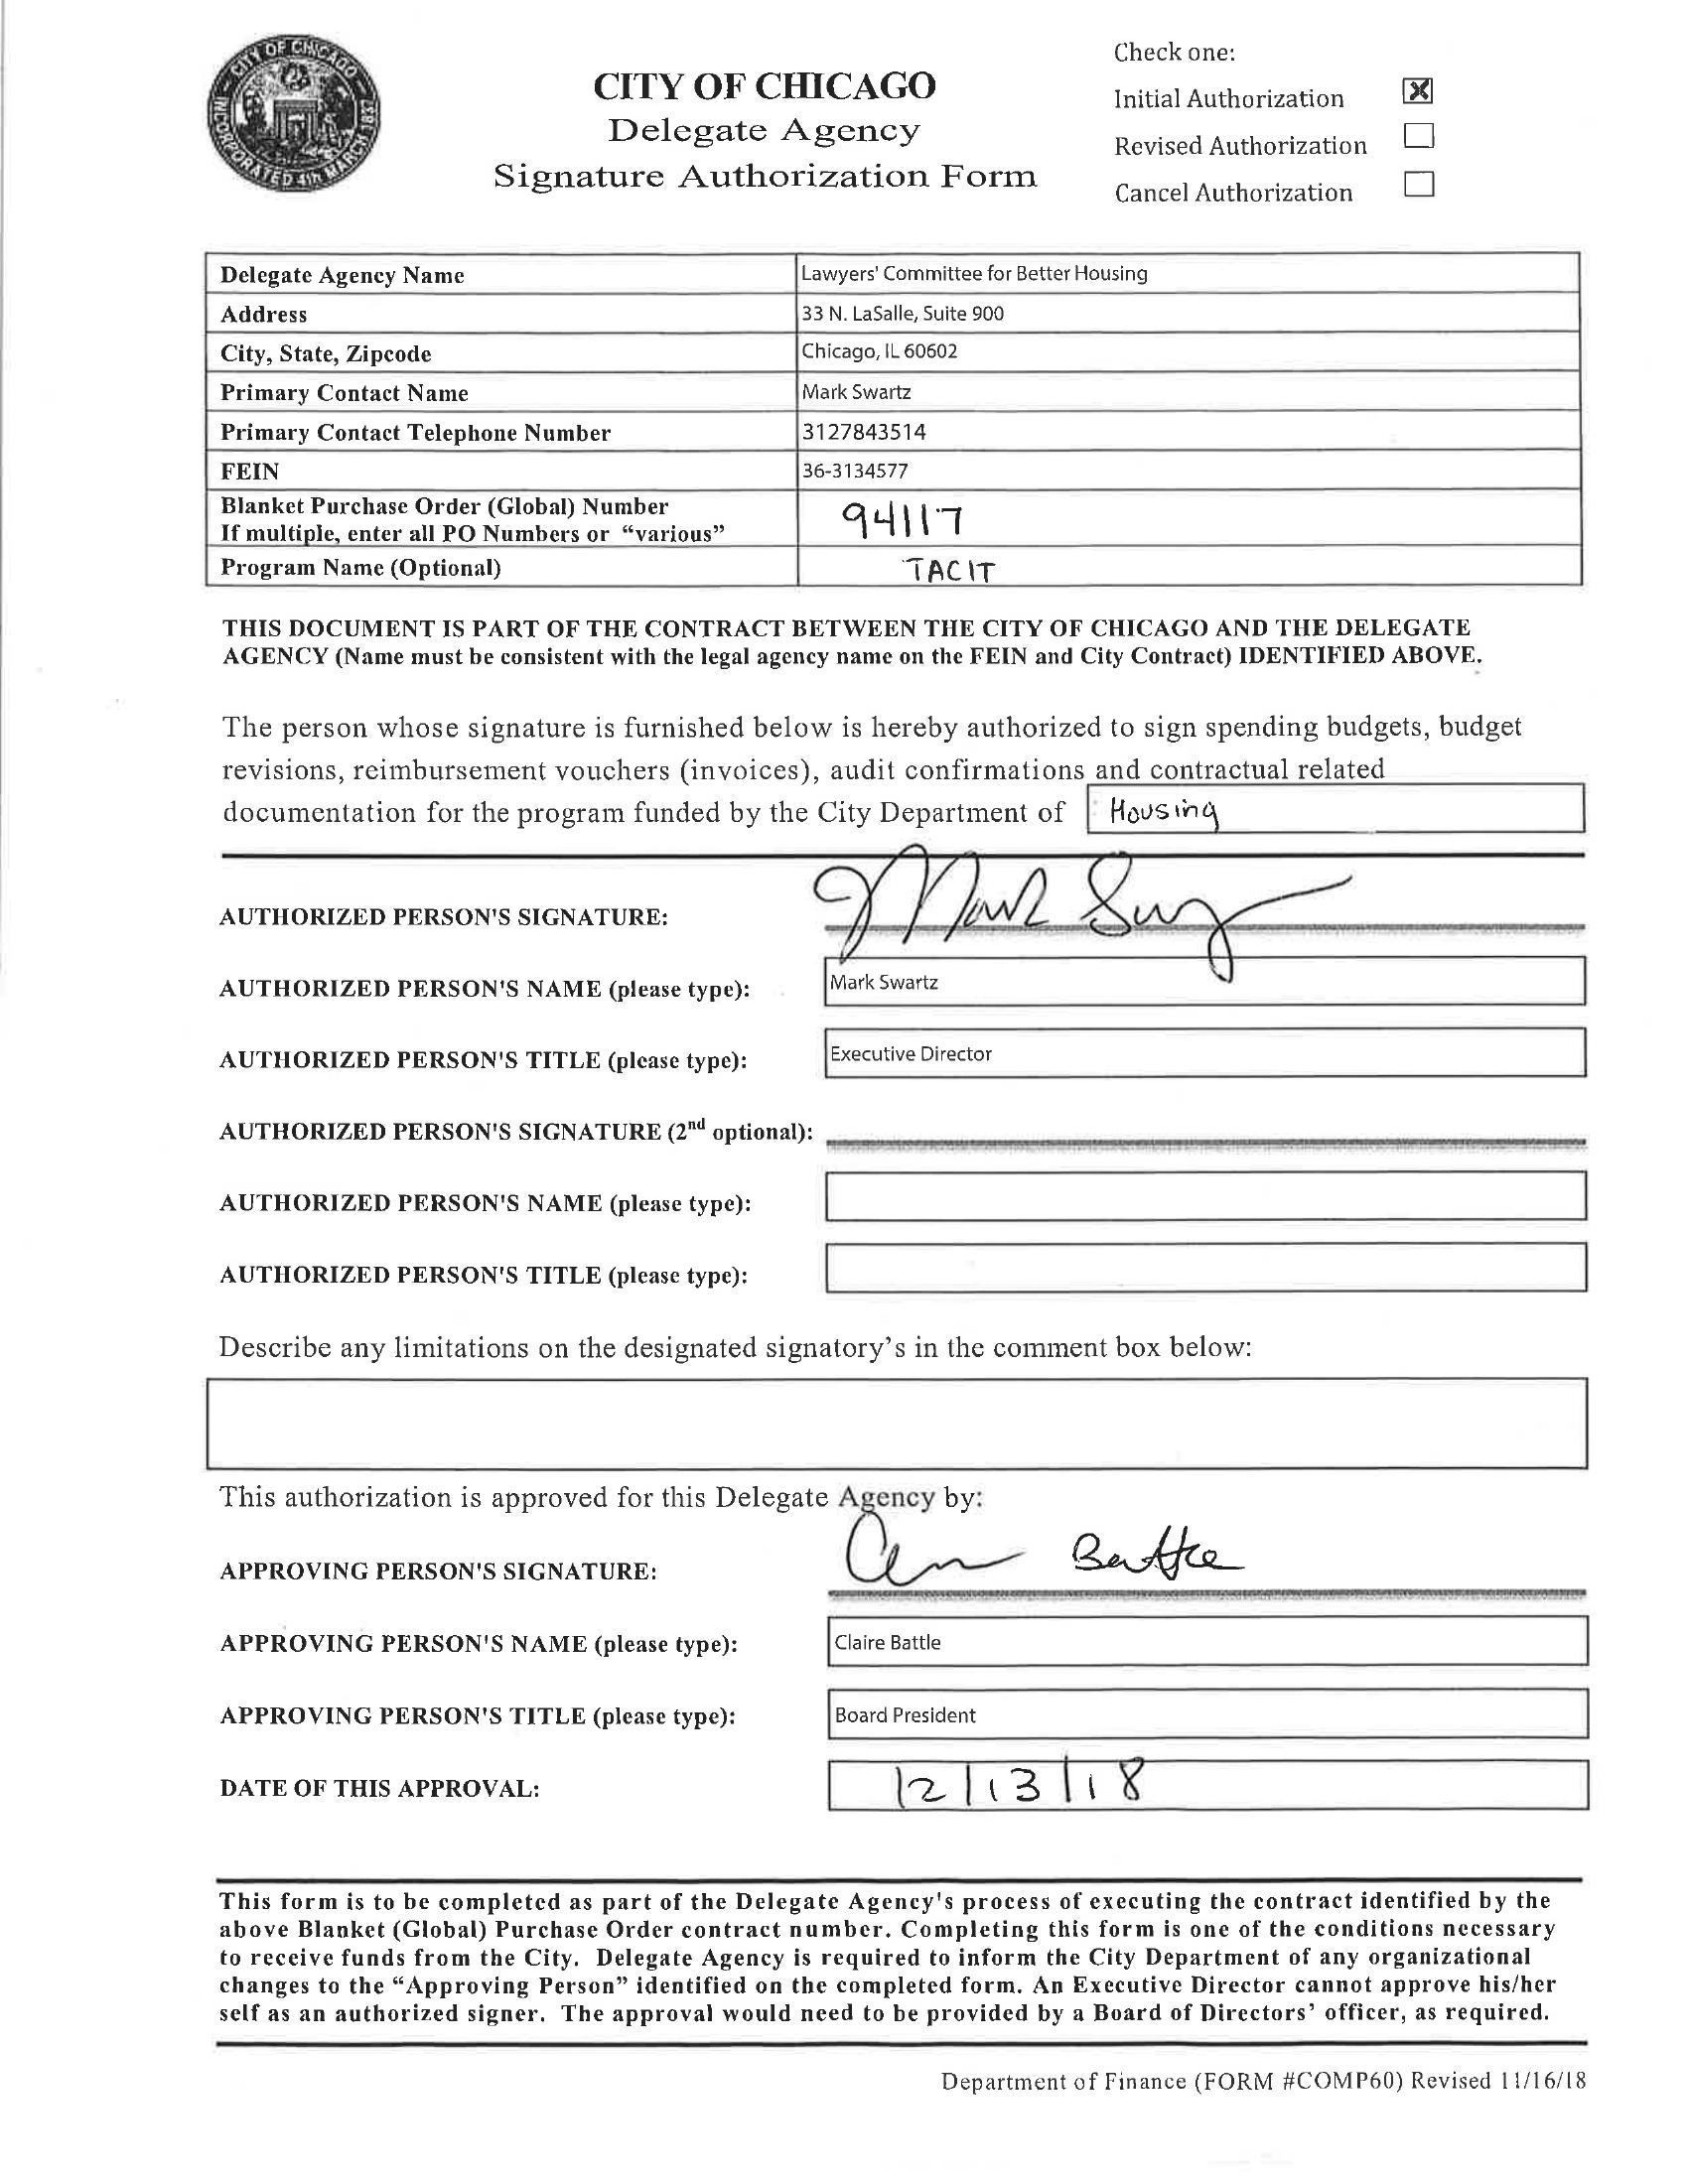 CITY OF CHICAGO
INCORPORATED 4th MARCH 1837
CITY OF CHICAGO
Delegate Agency
Signature Authorization Form
Check one:
Initial Authorization X
Revised Authorization
Cancel Authorization
Delegate Agency Name Lawyers' Committee for Better Housing
Address 33 N. LaSalle, Suite 900
City, State, Zipcode Chicago, IL 60602
Primary Contact Name Mark Swartz
Primary Contact Telephone Number 3127843514
FEIN 36-3134577
Blanket Purchase Order (Global) Number
If multiple, enter all PO Numbers or “various” 94117
Program Name (Optional) TACIT
THIS DOCUMENT IS PART OF THE CONTRACT BETWEEN THE CITY OF CHICAGO AND THE DELEGATE
AGENCY (Name must be consistent with the legal agency name on the FEIN and City Contract) IDENTIFIED ABOVE.
The person whose signature is furnished below is hereby authorized to sign spending budgets, budget
revisions, reimbursement vouchers (invoices), audit confirmations and contractual related
documentation for the program funded by the City Department of Housing
AUTHORIZED PERSON'S SIGNATURE: Mark
AUTHORIZED PERSON'S NAME (please type): Mark Swartz
AUTHORIZED PERSON'S TITLE (please type): Executive Director
AUTHORIZED PERSON'S SIGNATURE (2nd optional):
AUTHORIZED PERSON'S NAME (please type):
AUTHORIZED PERSON'S TITLE (please type):
Describe any limitations on the designated signatory’s in the comment box below:
This authorization is approved for this Delegate Agency by:
APPROVING PERSON'S SIGNATURE: Battle
APPROVING PERSON'S NAME (please type): Claire Battle
APPROVING PERSON'S TITLE (please type): Board President
DATE OF THIS APPROVAL: 12/13/18
This form is to be completed as part of the Delegate Agency's process of executing the contract identified by the
above Blanket (Global) Purchase Order contract number. Completing this form is one of the conditions necessary
to receive funds from the City. Delegate Agency is required to inform the City Department of any organizational
changes to the “Approving Person” identified on the completed form. An Executive Director cannot approve his/her
self as an authorized signer. The approval would need to be provided by a Board of Directors’ officer, as required.
Department of Finance (FORM #COMP60) Revised 11/16/18